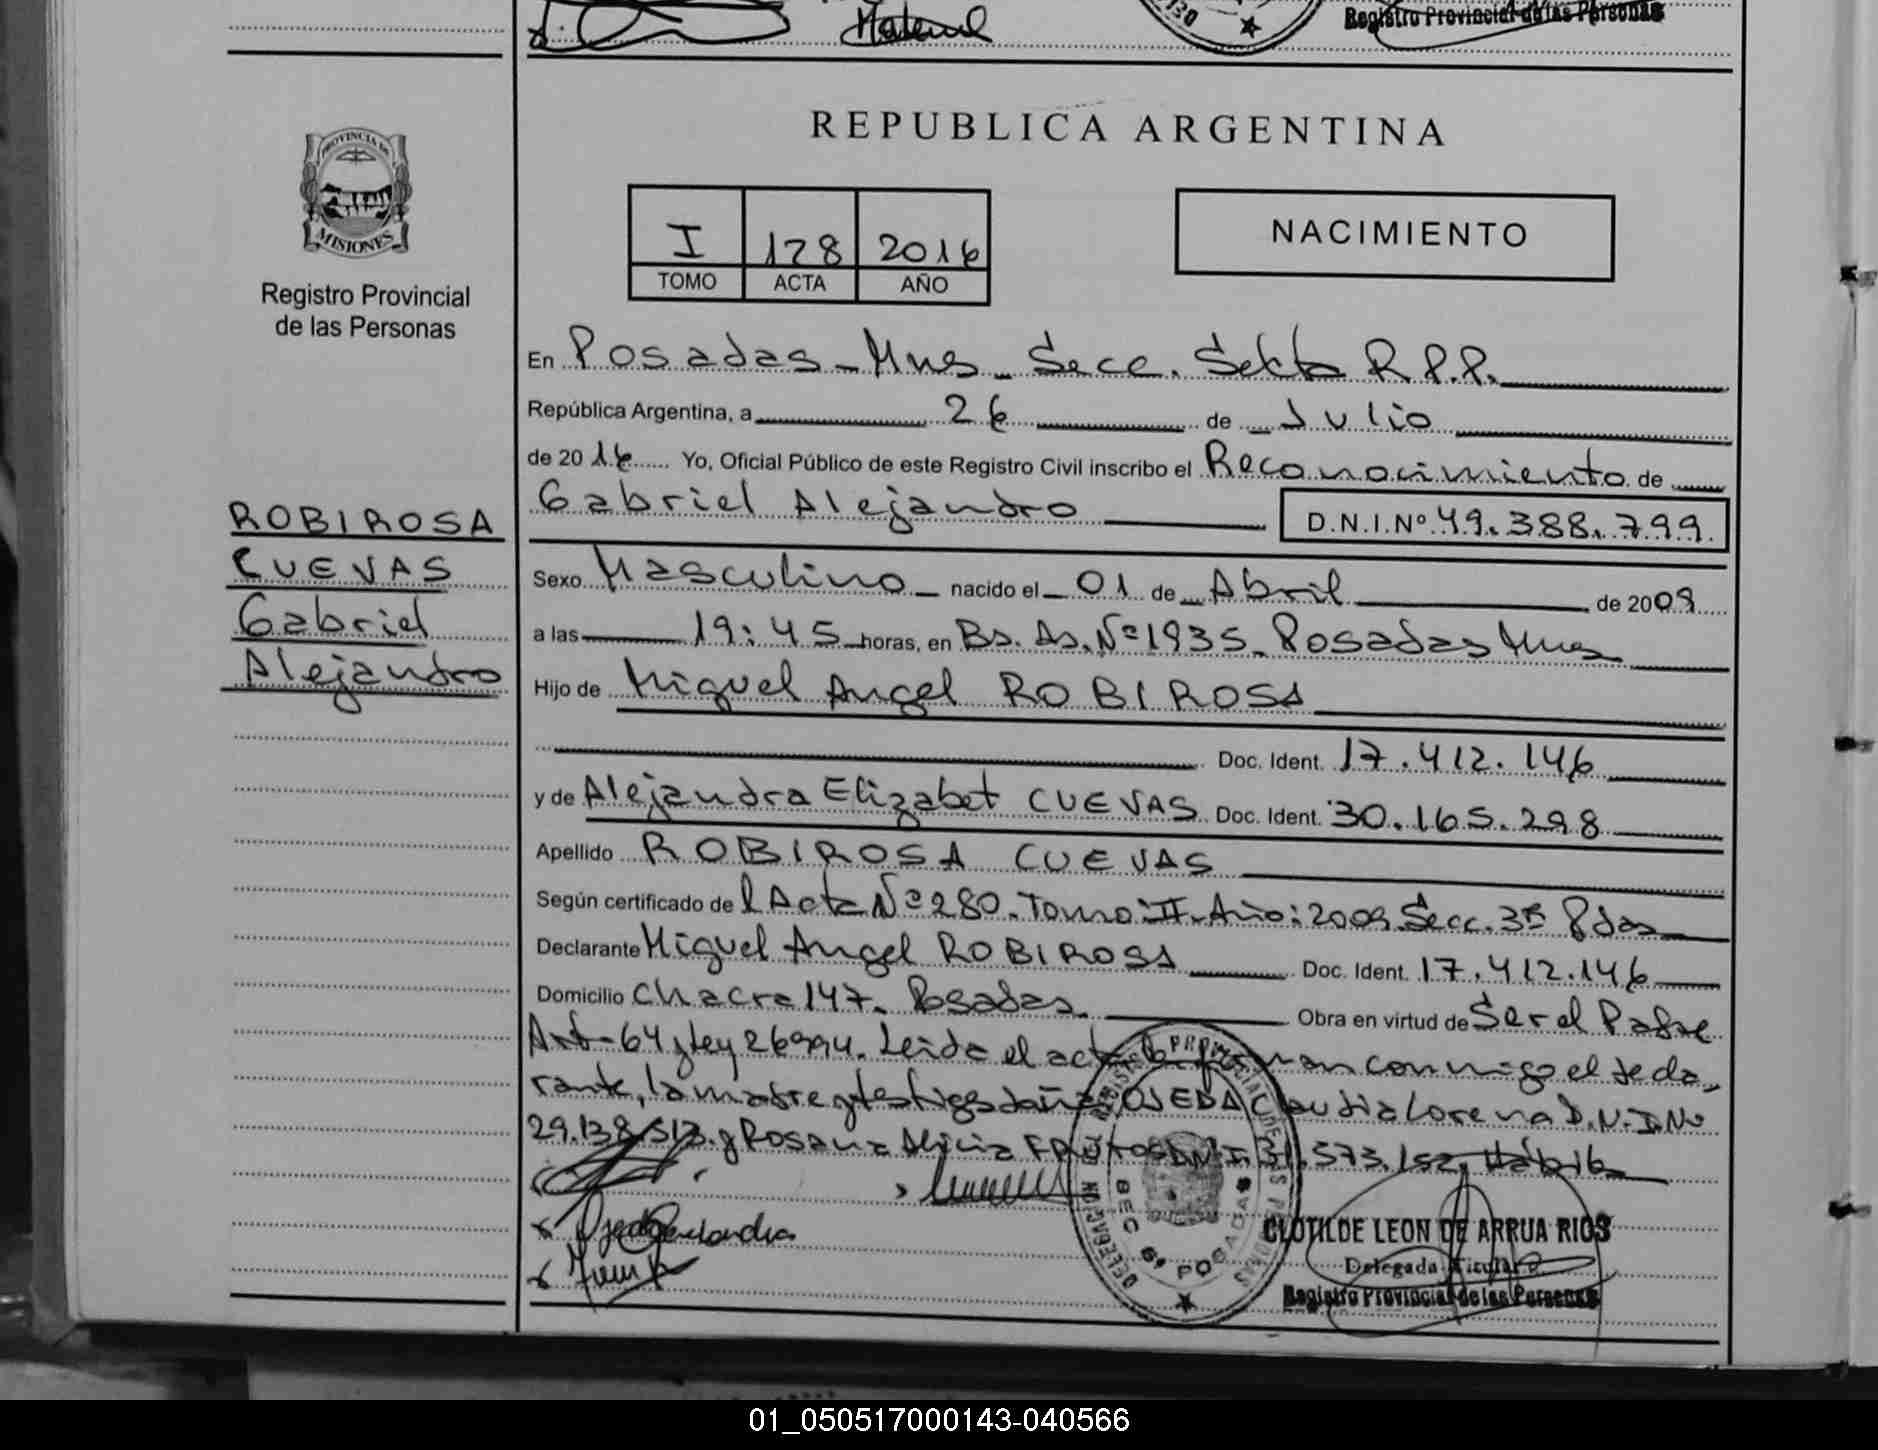 Maternal
Registro Provincial de las Personas
REPUBLICA ARGENTINA
PROVINCIA DE
MISIONES
Registro Provincial
de las Personas
I 128 2016
TOMO ACTA AÑO
NACIMIENTO
En Posadas - Mnes - Secc. Sexta R.P.P.
República Argentina, a 26 de Julio
de 2016 Yo, Oficial Público de este Registro Civil inscribo el Reconocimiento de
Gabriel Alejandro D.N.I.Nº 49.388.799
ROBIROSA
CUEVAS
Gabriel
Alejandro
Sexo Masculino nacido el 01 de Abril de 2009
a las 19:45 horas, en Bs. As. Nº 1935. Posadas Mnes
Hijo de Miguel Angel ROBIROSA
Doc. Ident. 17.412.146
y de Alejandra Elizabet CUEVAS Doc. Ident. 30.165.298
Apellido ROBIROSA CUEVAS
Según certificado de l Acta Nº 280. Tomo: II. Año: 2009. Secc. 3ª Pdas
Declarante Miguel Angel ROBIROSA Doc. Ident. 17.412.146
Domicilio Chacra 147. Posadas Obra en virtud de Ser el Padre
Art-64 y Ley 26994. Leida el acta la firman conmigo el decla-
rante, la madre y testigos doña OJEDA Claudia Lorena D.N.I.Nº
29.138.513. y Rosana Alicia FRUTOS D.N.I. 31.573.152
REGISTRO PROVINCIAL DE LAS PERSONAS
DELEGACION
SEC 6ª POSADAS
Ojeda Claudia
CLOTILDE LEON DE ARRUA RIOS
Delegada Titular
Registro Provincial de las Personas
01_050517000143-040566